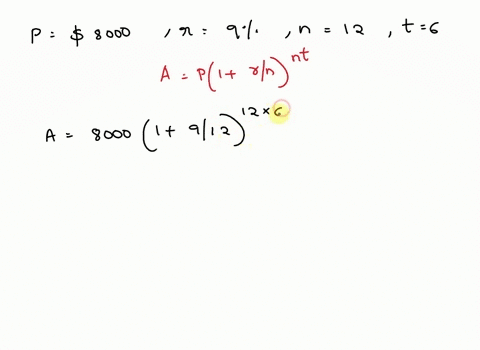 P = $ 8000 , r = 9% , n = 12 , t = 6
A = P(1 + r/n)^nt
A = 8000 (1 + 9/12)^12×6